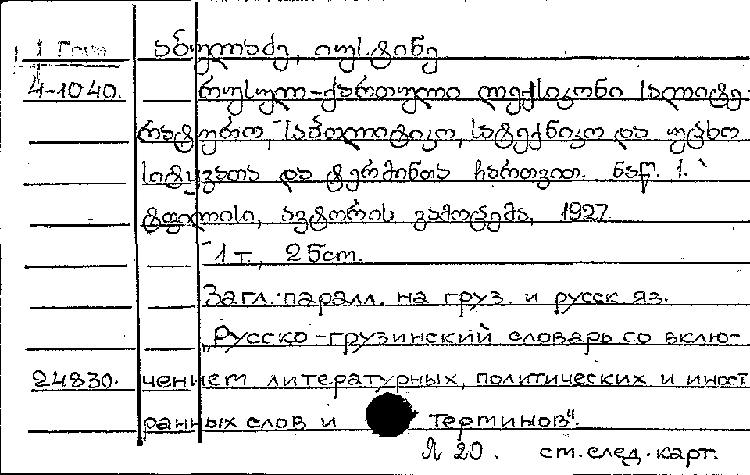 1 Груз აბულაძე, იუსტინე
4-1040. რუსულ-ქართული ლექსიკონი სალიტე-
რატურო, საპოლიტიკო, სატექნიკო და უცხო
სიტყვათა და ტერმინთა ჩართვით. ნაწ. 1.
ტფილისი, ავტორის გამოცემა, 1927.
1 т., 25cm.
Загл. паралл. на груз. и русск яз.
„Русско-грузинский словарь со вклю-
24830. чением литературных, политических и иност
ранных слов и терминов".
Л 20. см. след. карт.